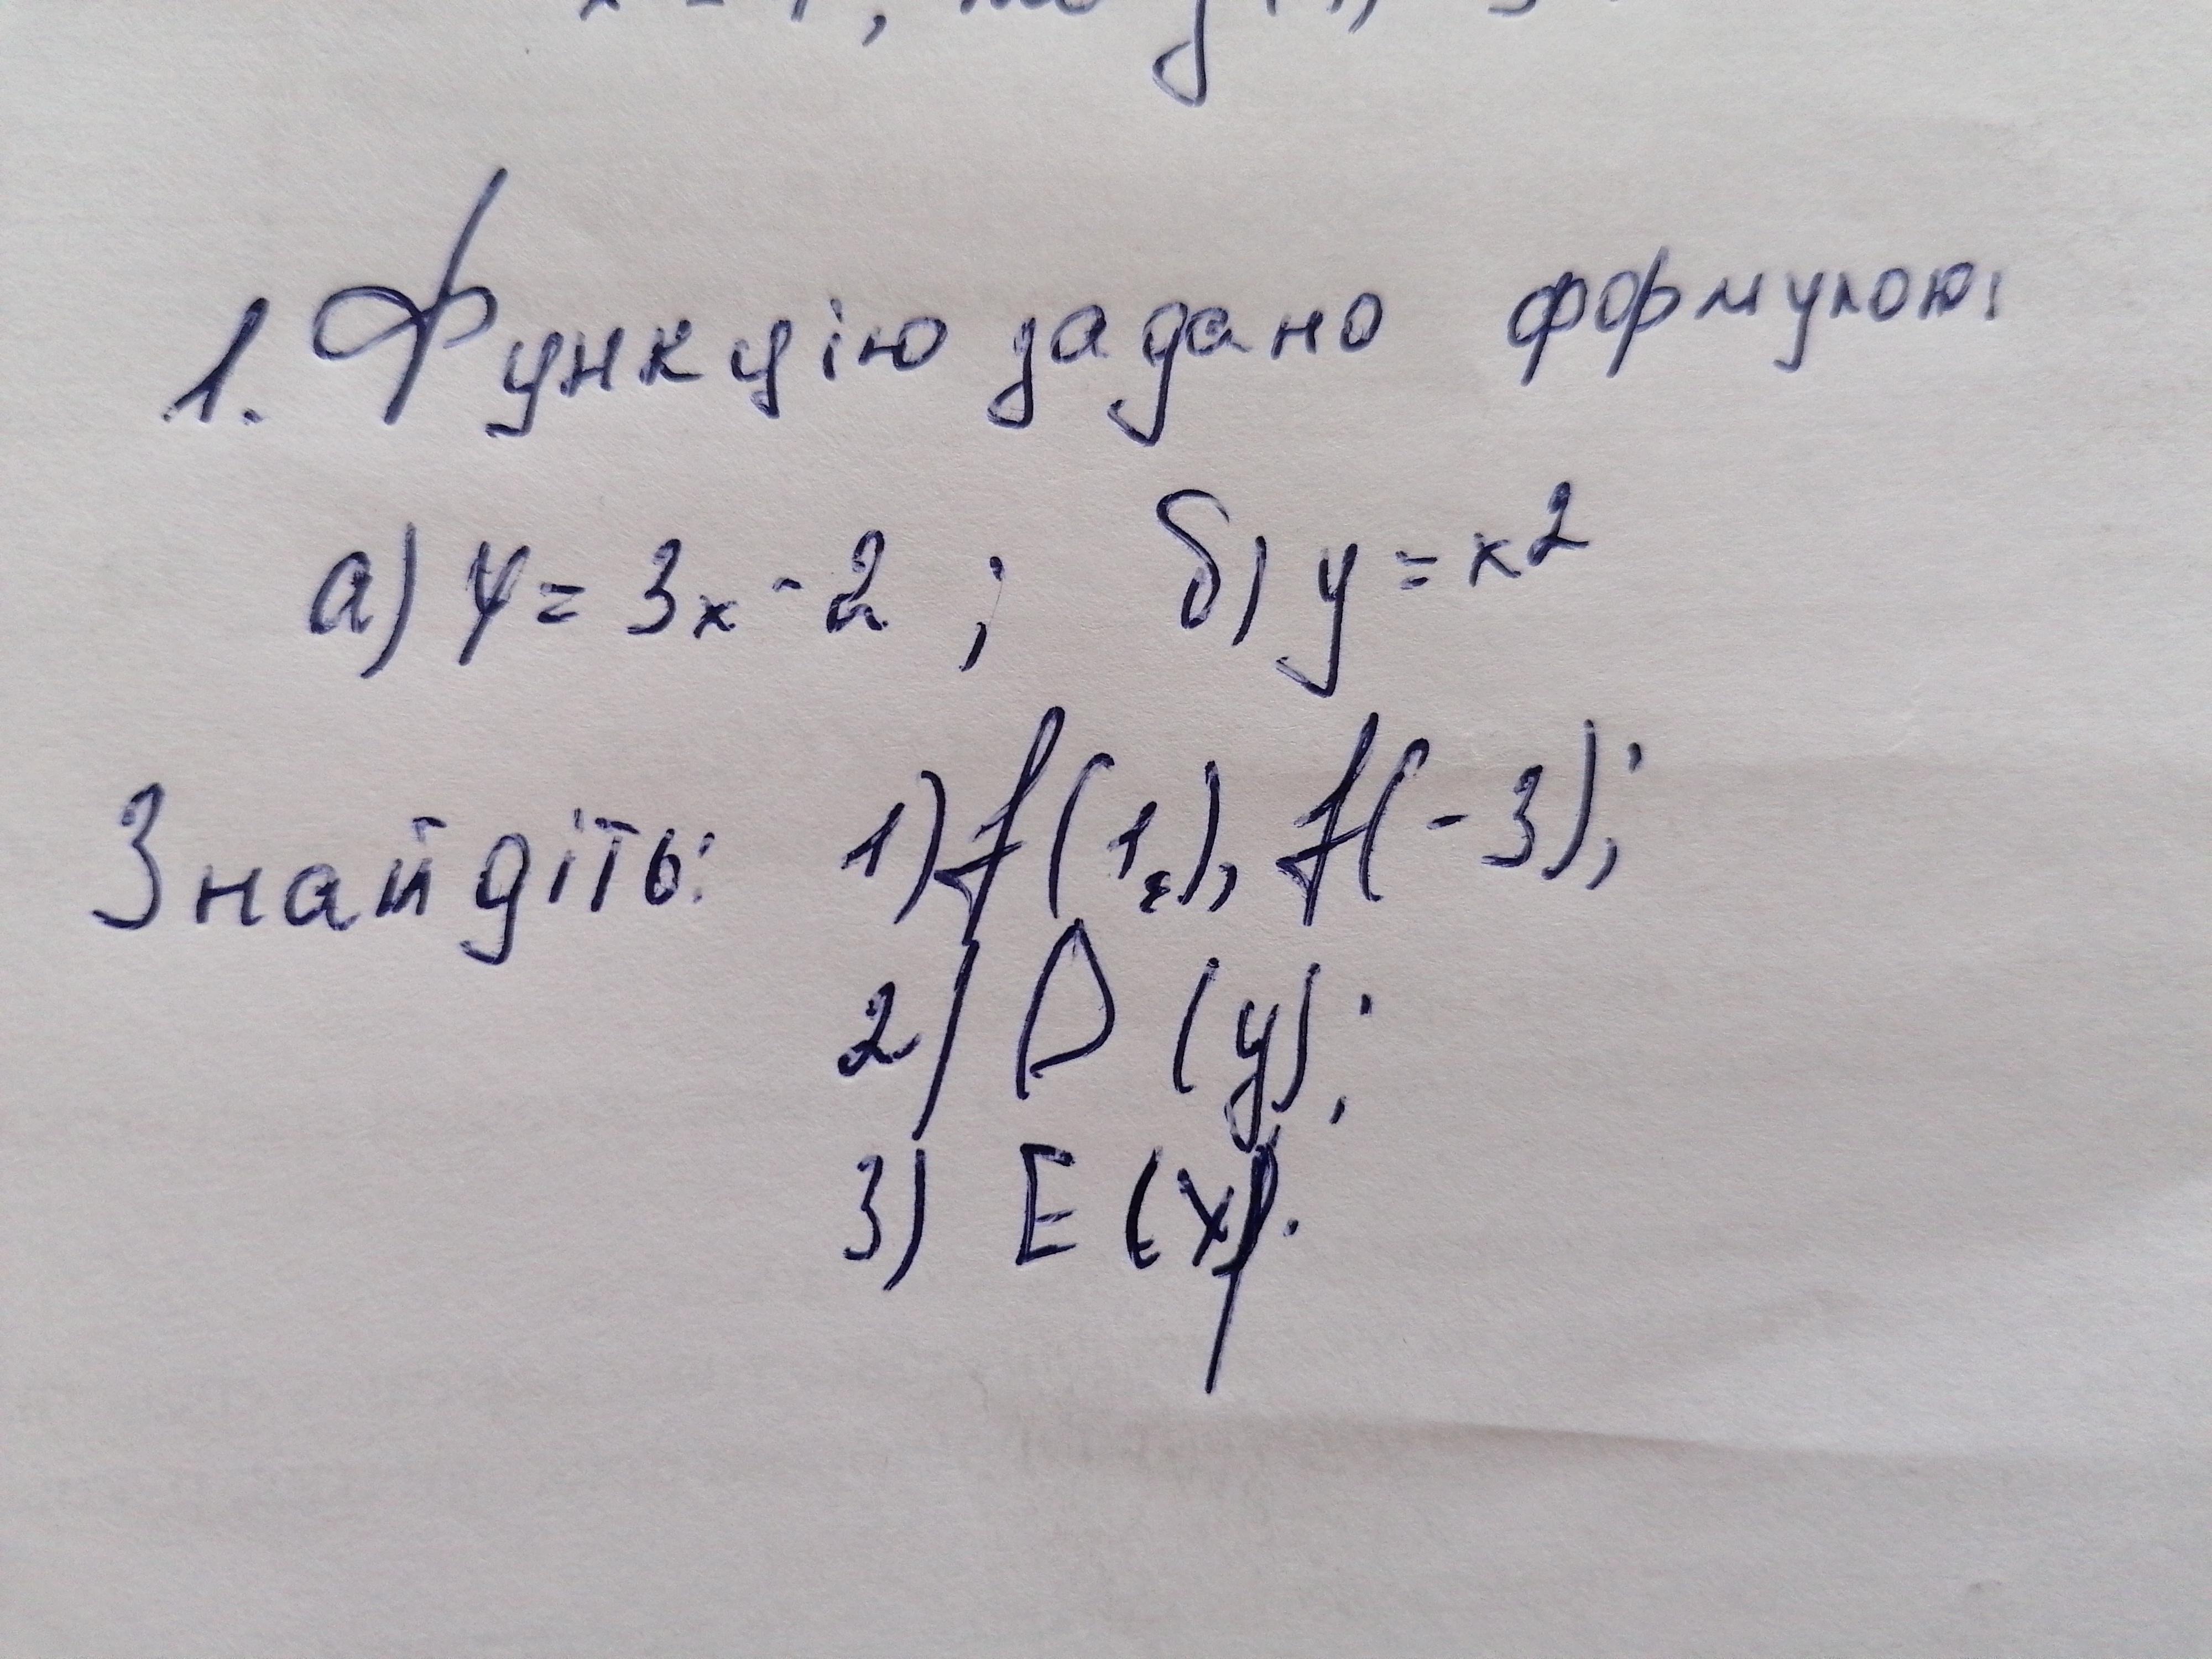 1. Функцію задано формулою:
а) y = 3x - 2 ; б) y = x²
Знайдіть: 1) f(1), f(-3);
2) D (y);
3) E (x).